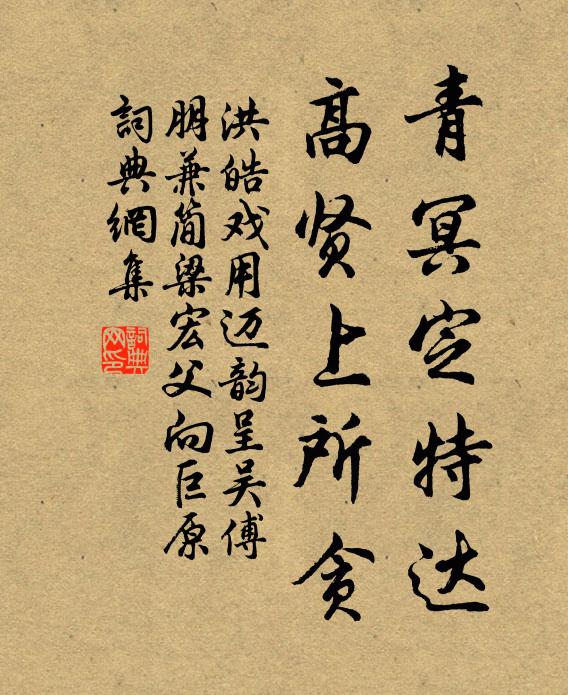 青冥定特达
高贤上所贪
洪皓戏用迈韵呈吴傅
朋兼简梁宏父向巨原
詞典網集
詞典
网印